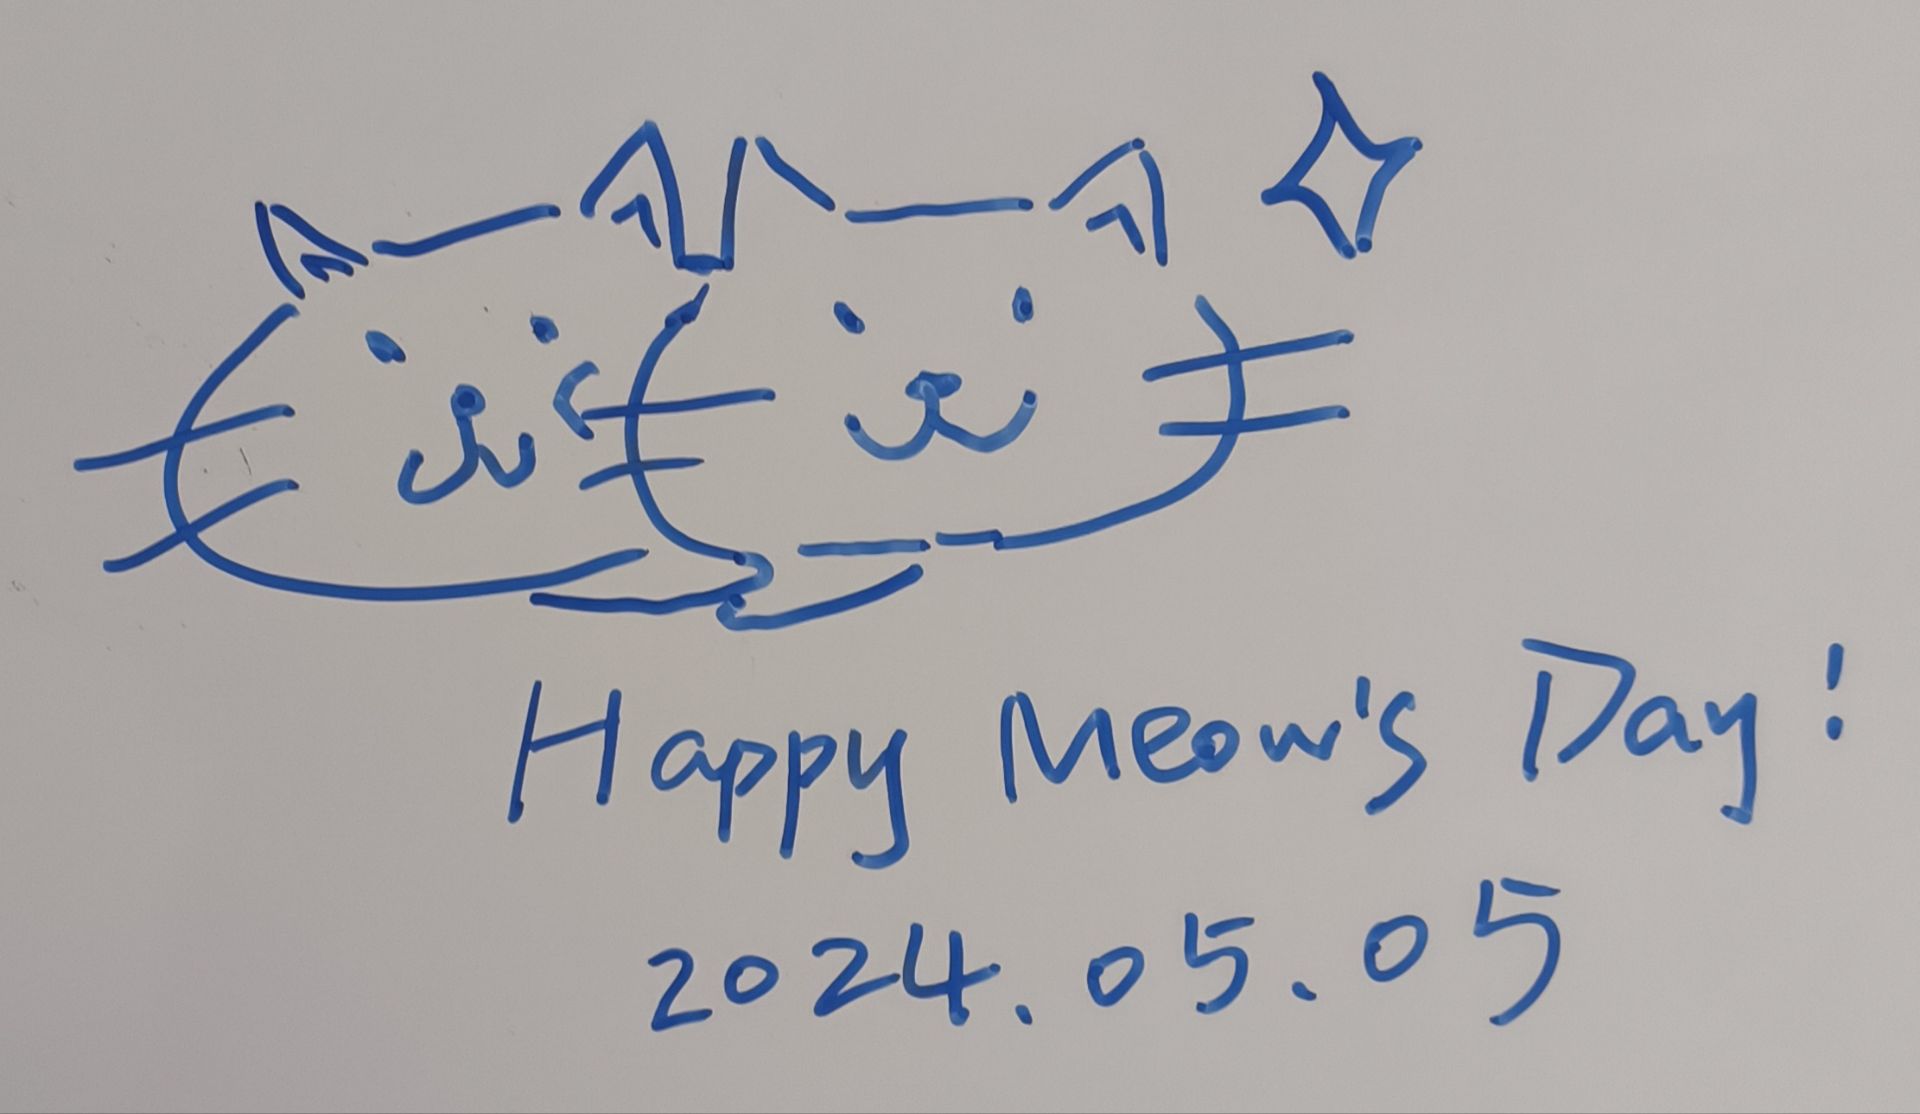 Happy Meow's Day!
2024.05.05